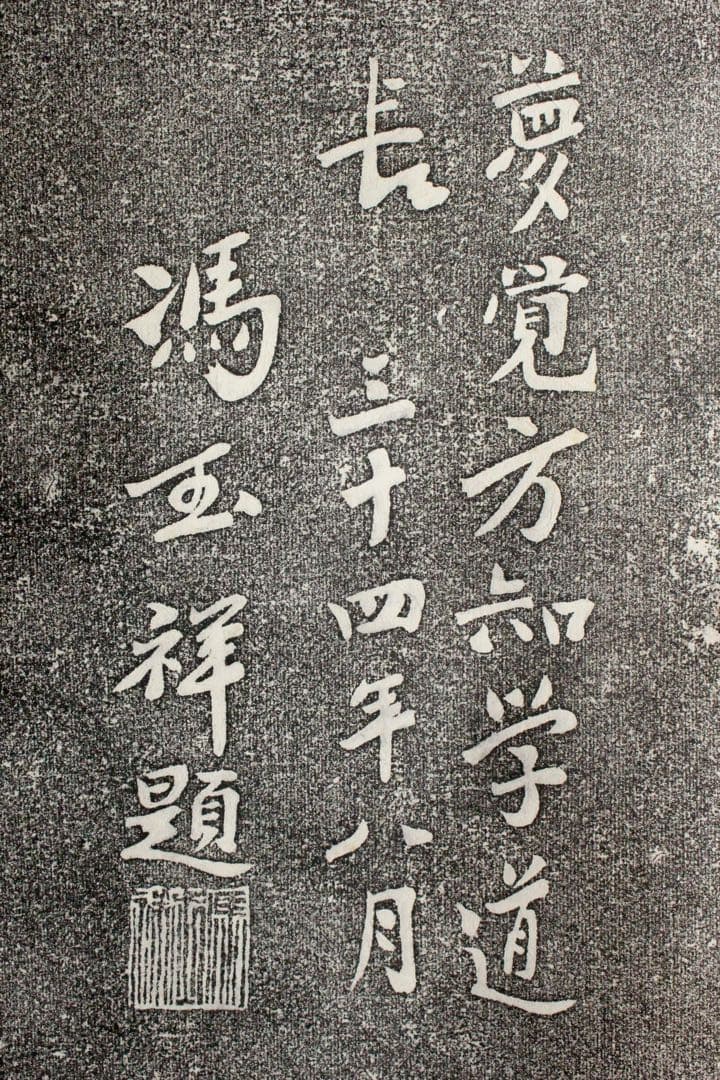 夢覺方知学道
長 三十四年八月
馮玉祥題